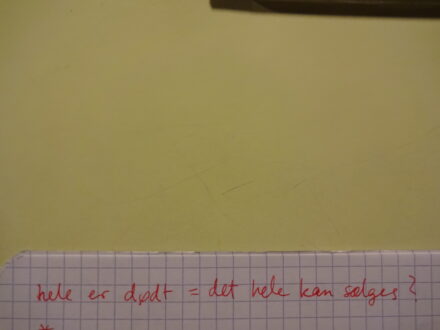 hele er dødt = det hele kan sælges?